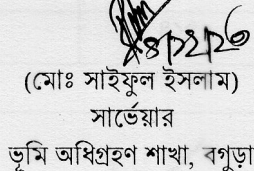 ৪/১২/২৩
(মোঃ সাইফুল ইসলাম)
সার্ভেয়ার
ভূমি অধিগ্রহণ শাখা, বগুড়া